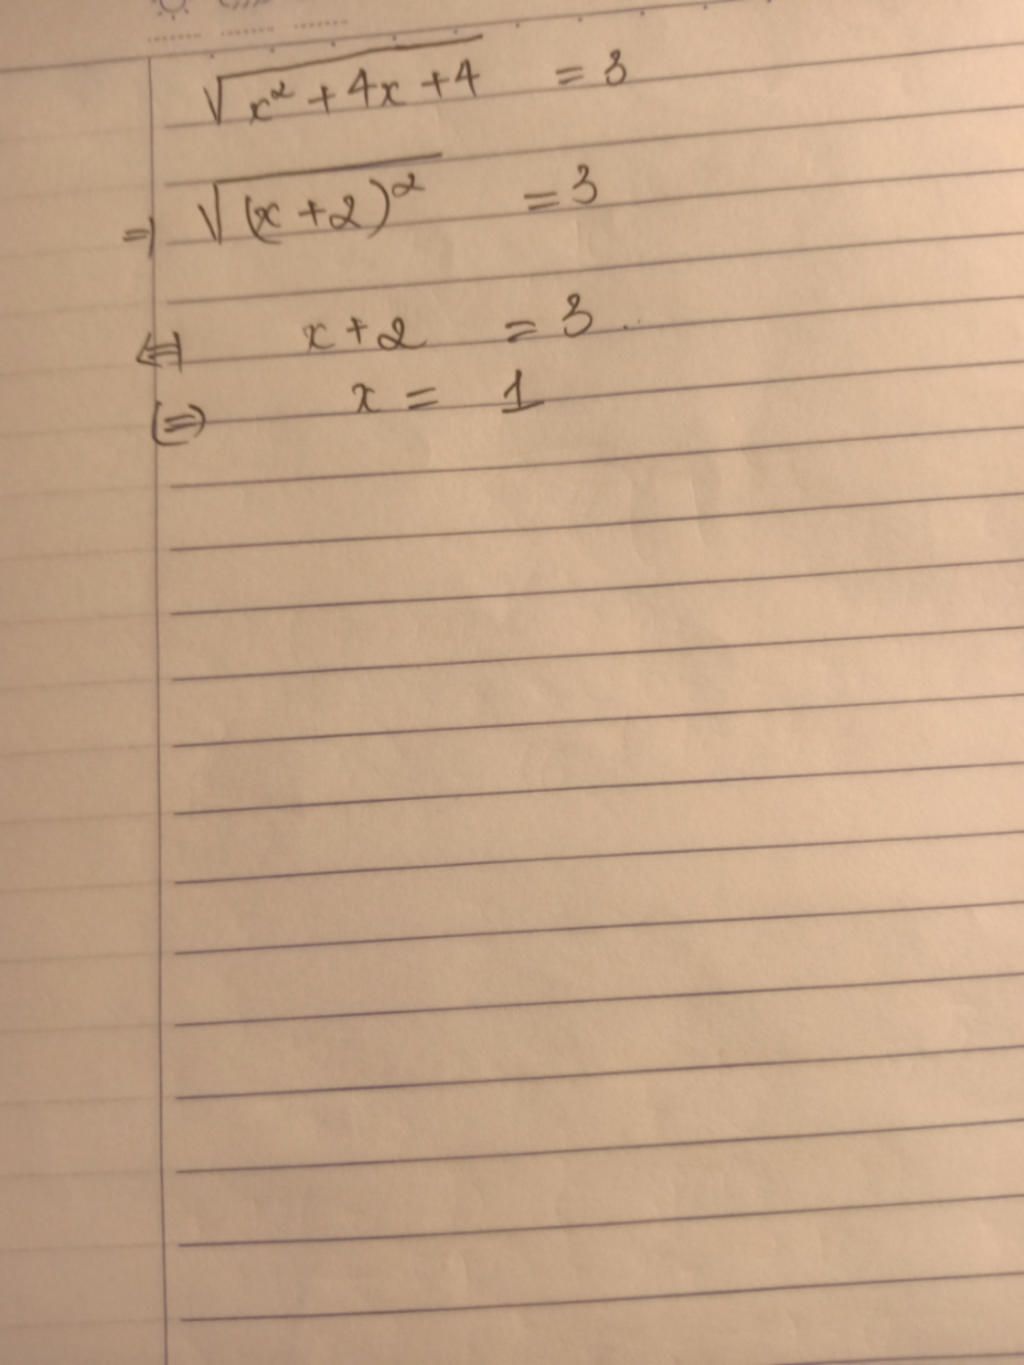 √(x² + 4x + 4) = 3
=> √((x + 2)²) = 3
<=> x + 2 = 3
<=> x = 1